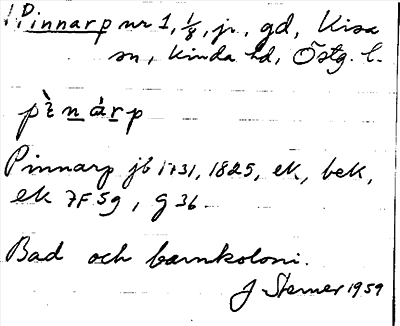 Pinnarp nr 1, 1/8, jr, gd, Kisa
sn, Kinda hd, Östg. l.
Pinnarp jb 1731, 1825, ek, bek,
ek 7F 5g, g 36
Bad och barnkoloni.
J Sterner 1959